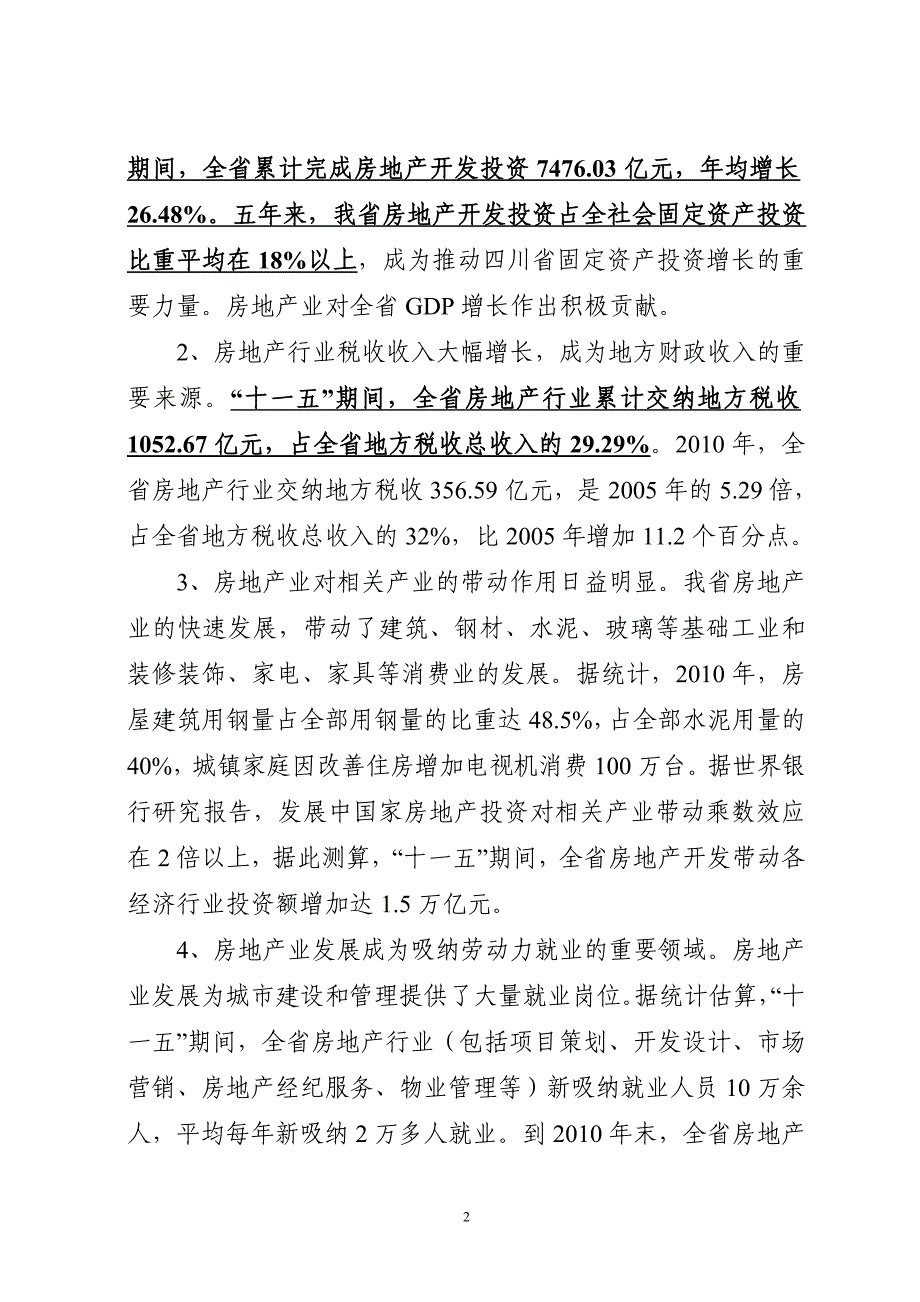 期间，全省累计完成房地产开发投资 7476.03 亿元，年均增长
26.48%。五年来，我省房地产开发投资占全社会固定资产投资
比重平均在 18%以上，成为推动四川省固定资产投资增长的重
要力量。房地产业对全省 GDP 增长作出积极贡献。
2、房地产行业税收收入大幅增长，成为地方财政收入的重
要来源。“十一五”期间，全省房地产行业累计交纳地方税收
1052.67 亿元，占全省地方税收总收入的 29.29%。2010 年，全
省房地产行业交纳地方税收 356.59 亿元，是 2005 年的 5.29 倍，
占全省地方税收总收入的 32%，比 2005 年增加 11.2 个百分点。
3、房地产业对相关产业的带动作用日益明显。我省房地产
业的快速发展，带动了建筑、钢材、水泥、玻璃等基础工业和
装修装饰、家电、家具等消费业的发展。据统计，2010 年，房
屋建筑用钢量占全部用钢量的比重达 48.5%，占全部水泥用量的
40%，城镇家庭因改善住房增加电视机消费 100 万台。据世界银
行研究报告，发展中国家房地产投资对相关产业带动乘数效应
在 2 倍以上，据此测算，“十一五”期间，全省房地产开发带动各
经济行业投资额增加达 1.5 万亿元。
4、房地产业发展成为吸纳劳动力就业的重要领域。房地产
业发展为城市建设和管理提供了大量就业岗位。据统计估算，“十
一五”期间，全省房地产行业（包括项目策划、开发设计、市场
营销、房地产经纪服务、物业管理等）新吸纳就业人员 10 万余
人，平均每年新吸纳 2 万多人就业。到 2010 年末，全省房地产
2